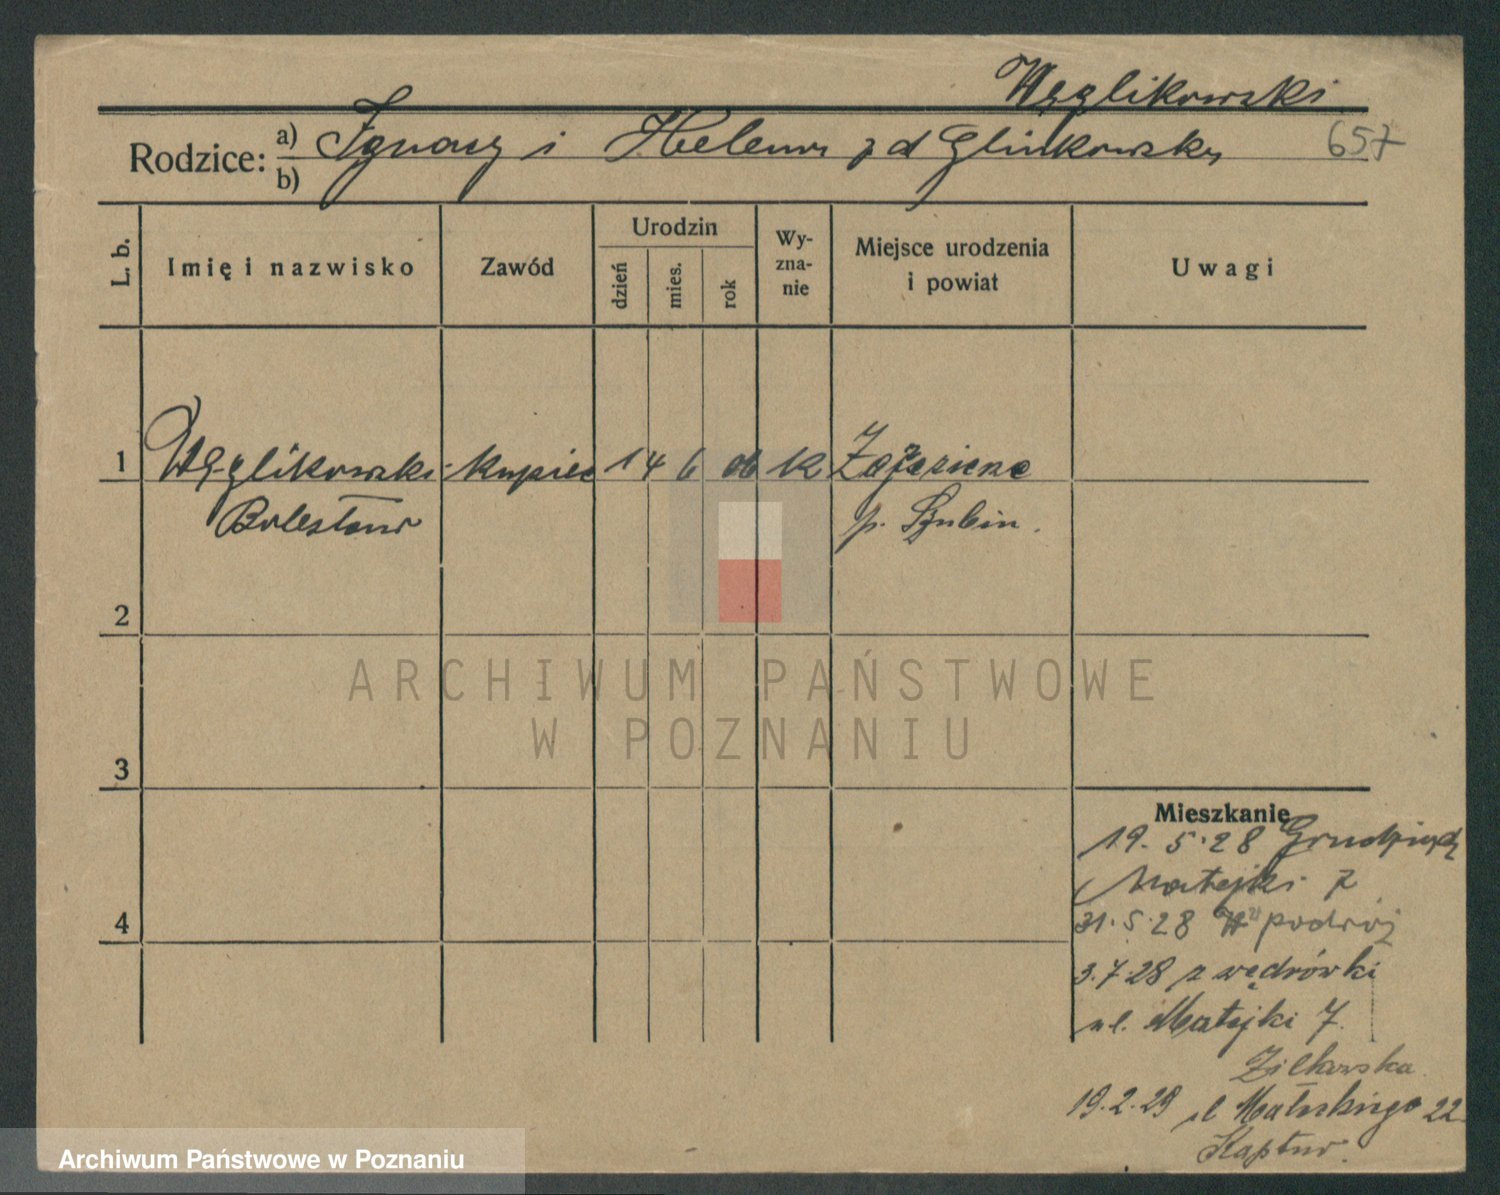 Węglikowski
Rodzice: a) Ignacy i Helena z d Glinkowska 657
b)
L. b. Imię i nazwisko Zawód Urodzin dzień mies. rok Wy-zna-nie Miejsce urodzenia i powiat Uwagi
1 Węglikowski kupiec 14 6 06 k
Bolesław p. Szubin.
2
3
4
Mieszkanie
19. 5. 28 Grudziądz
Matejki 7
31. 5. 28 W podróż
3.7.28 z wędrówki
ul. Matejki 7.
19.2.29 22
Kaptur.
ARCHIWUM PAŃSTWOWE
W POZNANIU
Archiwum Państwowe w Poznaniu